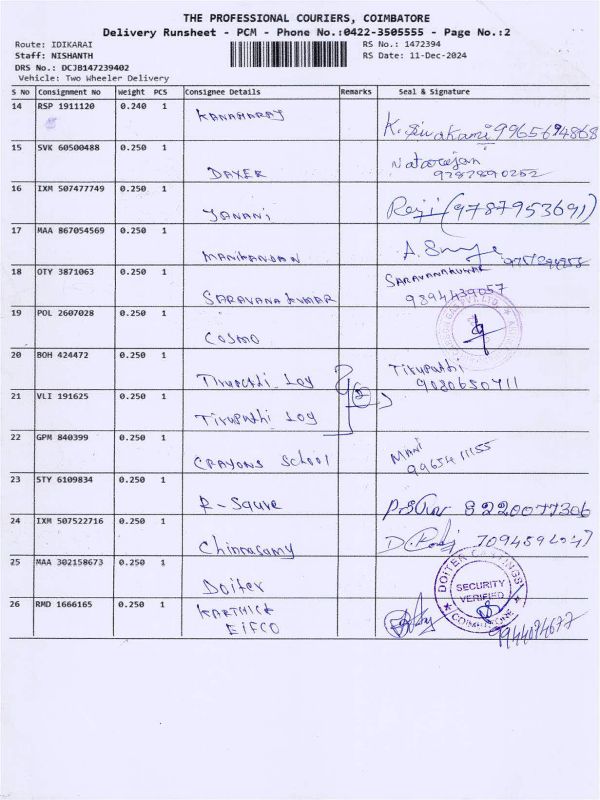 THE PROFESSIONAL COURIERS, COIMBATORE
Delivery Runsheet - PCM - Phone No.:0422-3505555 - Page No.:2
Route: IDIKARAI
RS No.: 1472394
Staff: NISHANTH
RS Date: 11-Dec-2024
DRS No.: DCJB147239402
Vehicle: Two Wheeler Delivery
S No Consignment No Weight PCS Consignee Details Remarks Seal & Signature
14 RSP 1911120 0.240 1 KANAGARAJ K. Sivakami 9965694868
15 SVK 60500488 0.250 1 DAXER Natarajan 9787890252
16 IXM 507477749 0.250 1 JANANI Reji (9787953691)
17 MAA 867054569 0.250 1 MANIKANDAN A.
18 OTY 3871063 0.250 1 SARAVANA KUMAR SARAVANAKUMAR 9894439057
19 POL 2607028 0.250 1 COSMO
20 BOH 424472 0.250 1 Tirupathi Log Tirupathi 9080650711
21 VLI 191625 0.250 1 Tirupathi Log 2
22 GPM 840399 0.250 1 CRAYONS School MANI 9965411155
23 STY 6109834 0.250 1 R-Squre 8220077306
24 IXM 507522716 0.250 1 Chinnasamy D.
25 MAA 302158673 0.250 1 Doiter
DOITER CASTINGS
SECURITY
VERIFIED
COIMBATORE
26 RMD 1666165 0.250 1 KARTHICK
EIFCO 9944094677